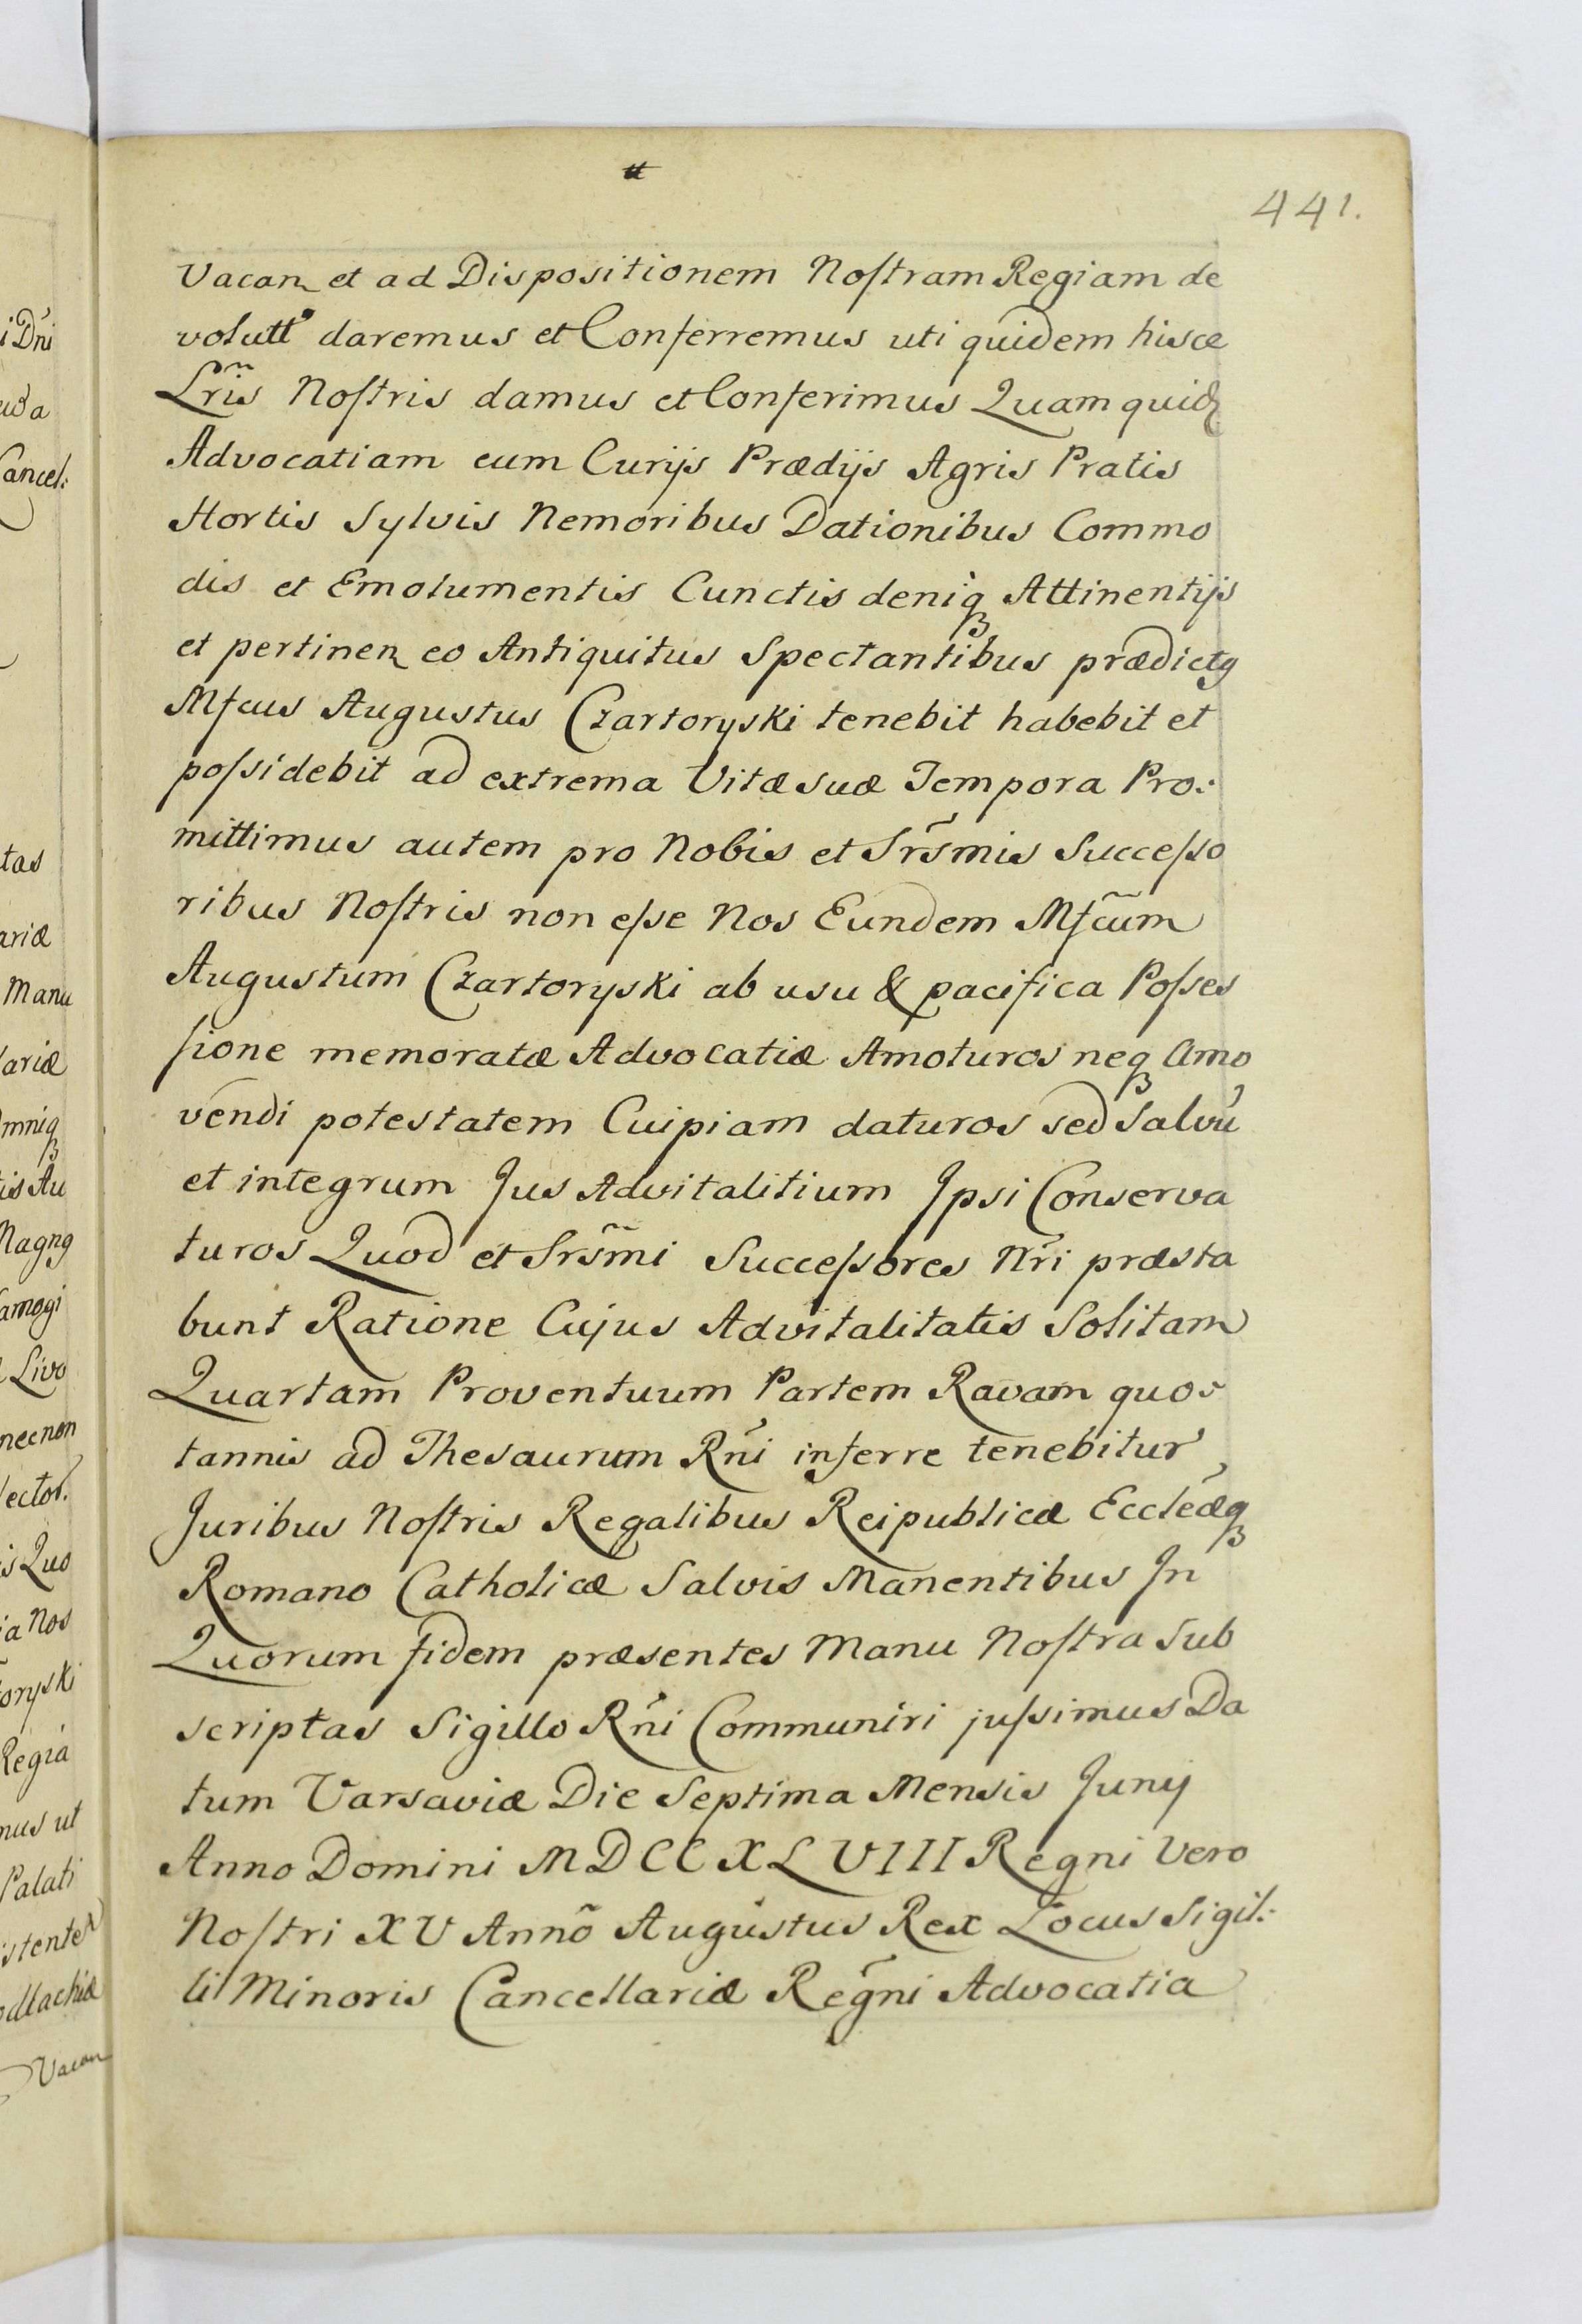 441.
Vacan et ad Dispositionem Noſtram Regiam de
volutt daremus et Conferremus uti quidem hisce
Lr̃is Noſtris damus et Conferimus Quam quid
Advocatiam cum Curijs Prædijs Agris Pratis
Hortis Sylvis Nemoribus Dationibus Commo
dis et Emolumentis Cunctis deniq Attinentijs
et pertinen eo Antiquitus Spectantibus prædictg
Mfcus Augustus Czartoryski tenebit habebit et
poſsidebit ad extrema Vitæ suæ Tempora Pro:
mittimus autem pro Nobis et Sr̃smis Succeſso
ribus Noſtris non eſse Nos Eundem Mfc̃um
Augustum Czartoryski ab usu & pacifica Poſses
ſione memoratæ Advocatiæ Amoturos neq Amo
vendi potestatem Cuipiam daturos sed Salvũ
et integrum Jus Advitalitium Ipsi Conserva
turos Quod et Srs̃mi Succeſsores Nr̃i præsta
bunt Ratione Cujus Advitalitatis Solitam
Quartam Proventuum Partem Ravam quos
tannis ad Thesaurum Rñi inferre tenebitur
Juribus Noſtris Regalibus Reipublicæ Eccleæq
Romano Catholicæ Salvis Manentibus In
Quorum fidem præsentes Manu Noſtra Sub
scriptas Sigillo Rñi Communiri juſsimus Da
tum Varsaviæ Die Septima Mensis Junij
Anno Domini MDCCXLVIII Regni Vero
Noſtri XV Anno Augustus Rex Locus Sigil:
li Minoris Cancellariæ Regni Advocatia
i Dñi
Cancel:
tas
ariæ
Manu
lariæ
mniq
is Au
Magng
Samogi
Livo
necnon
lector.
is Quo
ia Nos
oryski
Regia
mus ut
Palati
istentes
odlachiæ
Vacan